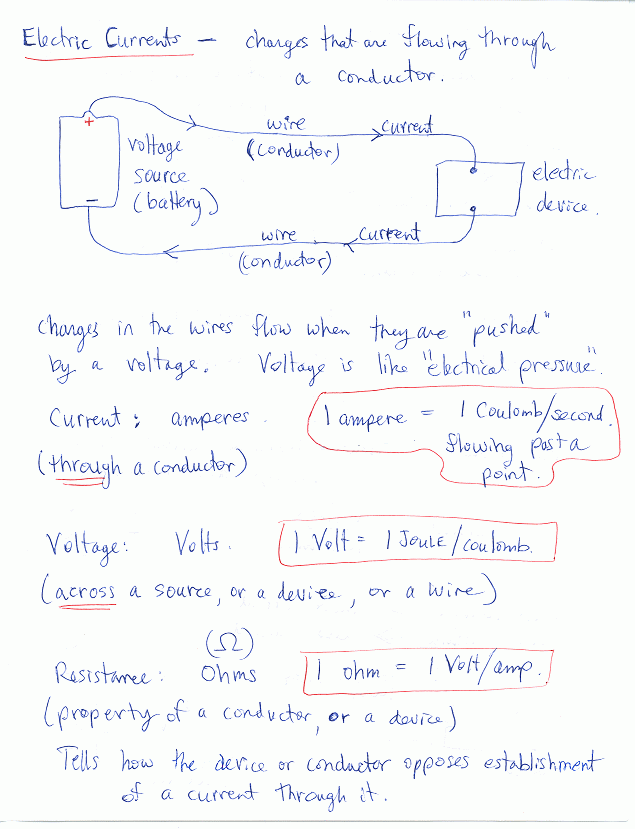 Electric Currents — charges that are flowing through
a conductor.
+
wire
current
voltage
(conductor)
source
electric
(battery)
device.
–
wire
current
(conductor)
Charges in the wires flow when they are "pushed"
by a voltage. Voltage is like "electrical pressure".
Current: amperes. 1 ampere = 1 Coulomb/second.
flowing past a
(through a conductor)
point.
Voltage: Volts. 1 Volt = 1 JOULE/coulomb.
(across a source, or a device, or a wire)
(Ω)
Resistance: Ohms 1 ohm = 1 Volt/amp.
(property of a conductor, or a device)
Tells how the device or conductor opposes establishment
of a current through it.